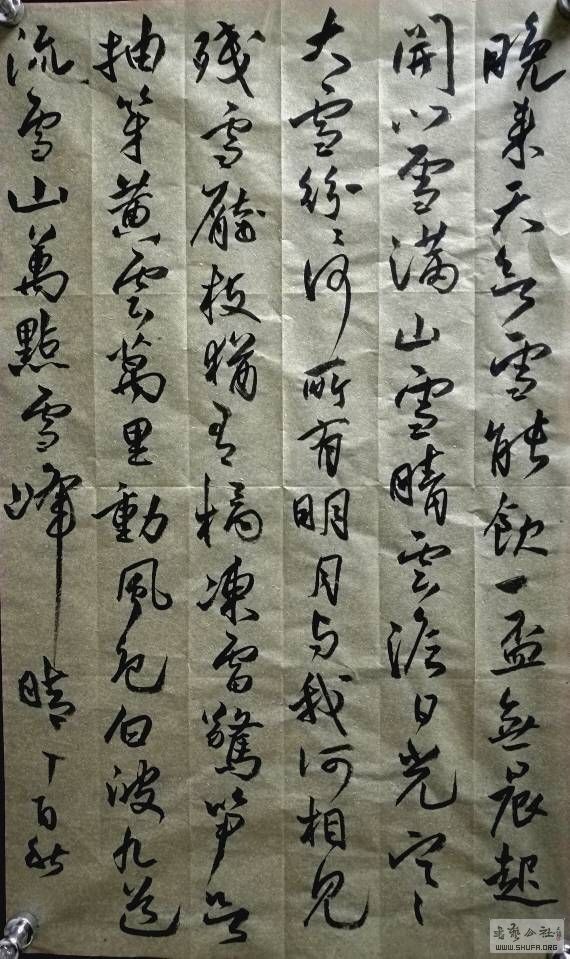 晚来天欲雪能飲一盃無晨起
開门雪满山雪晴雲澹日光寒〻
大雪紛〻何所有明月与我何相見
残雪壓枝猶有橘凍雷驚筍欲
抽芽黄雲萬里動風色白波九道
流雪山萬點雪峰晴丁酉秋
WWW.SHUFA.ORG